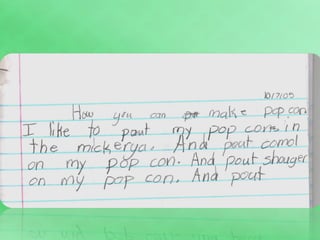 10/17/05
How you can make pop con
I like to pout my pop corn in
the mickerya. And pout comol
on my pop con. And pout shauger
on my pop con. And pout